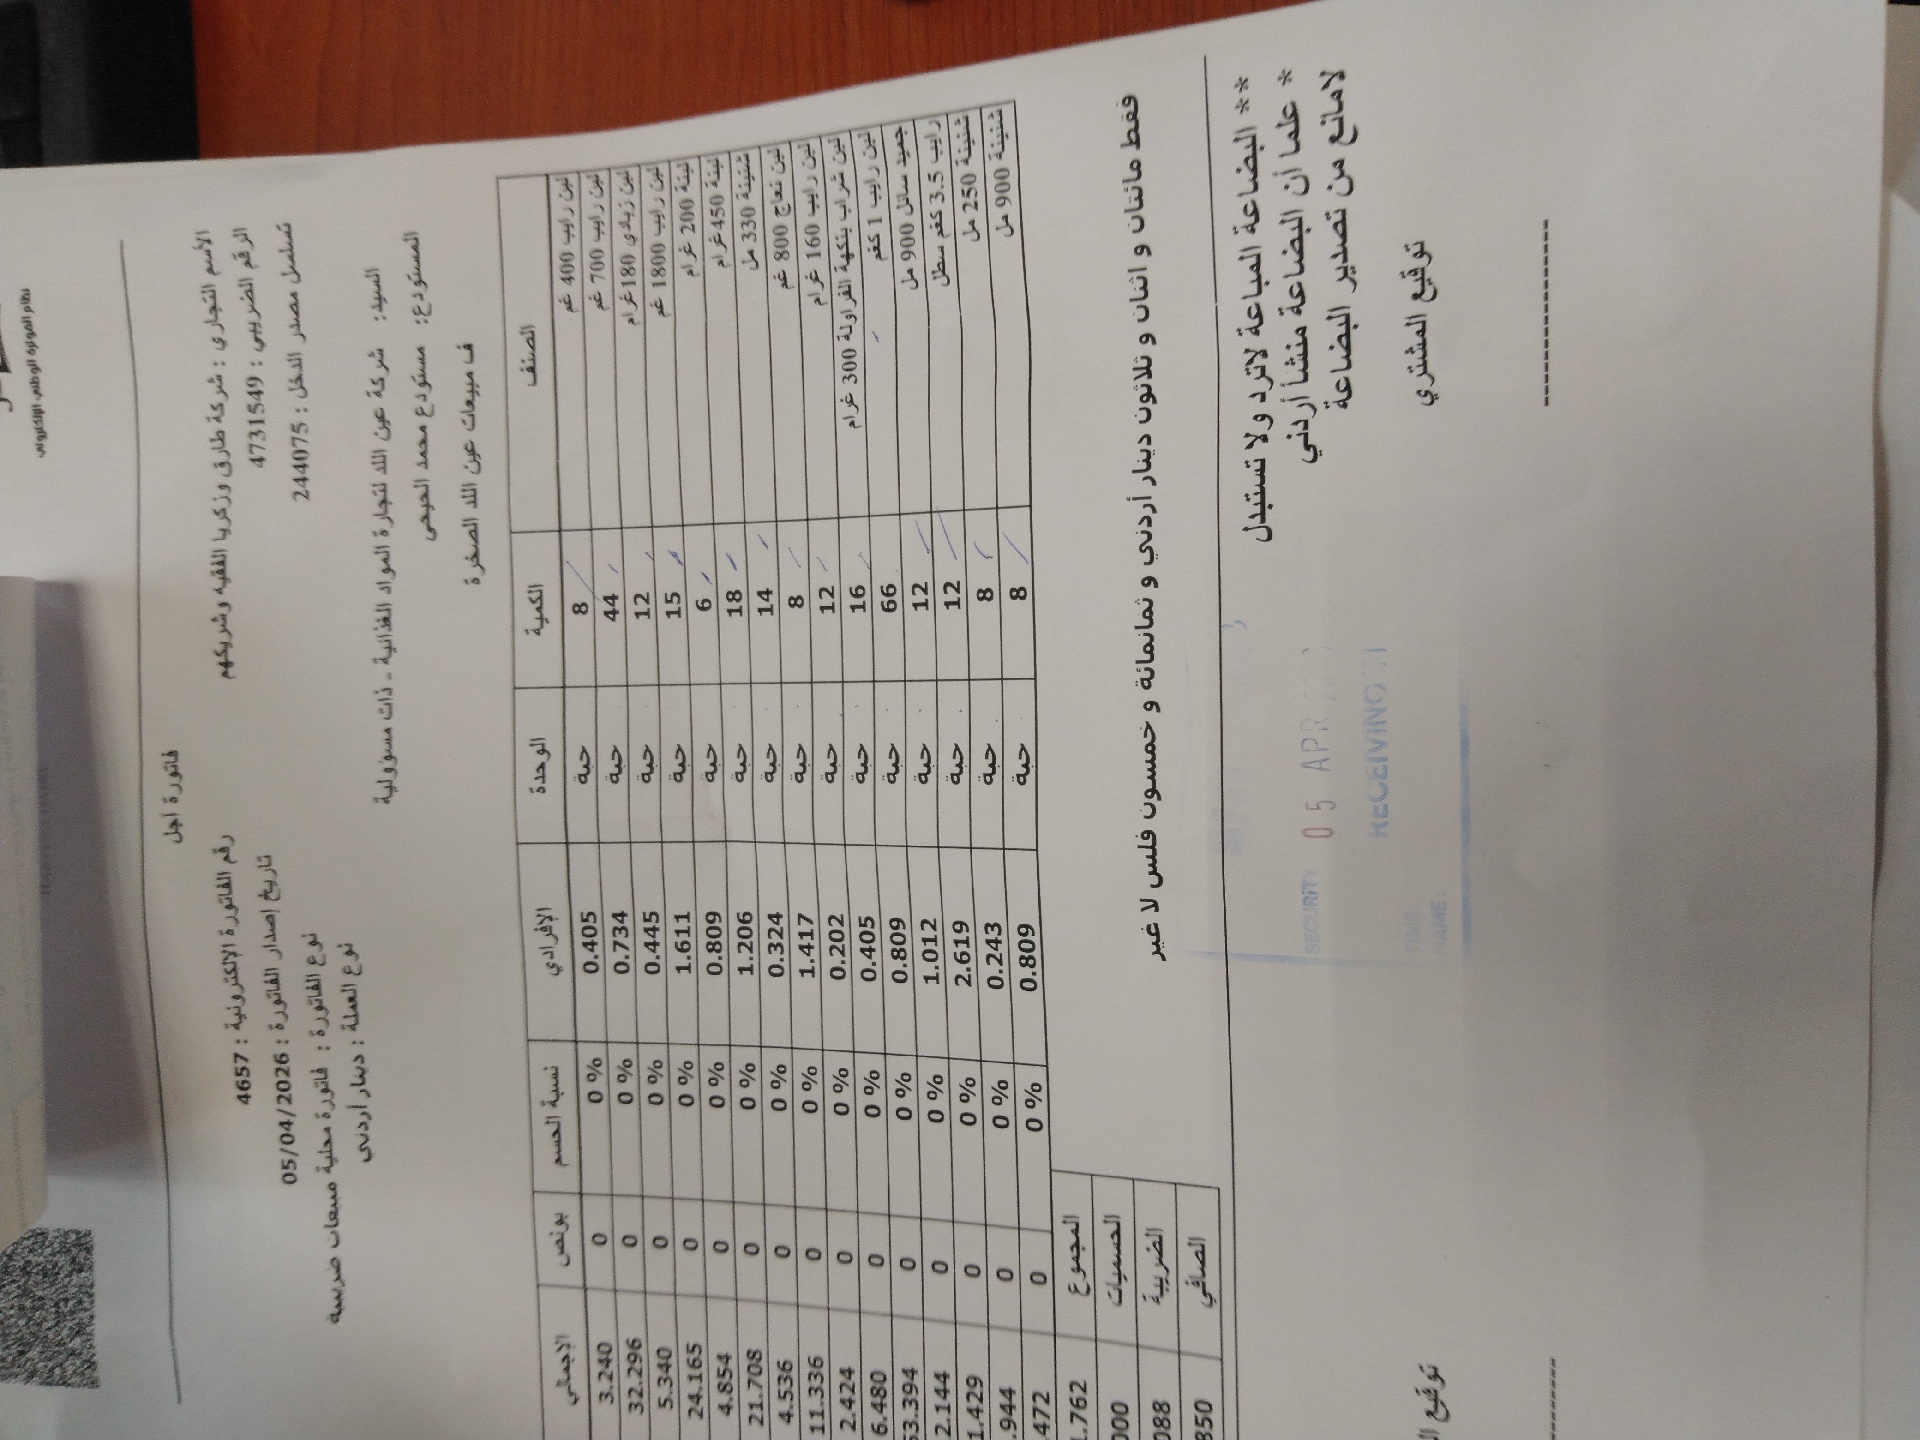 نظام الفوترة الوطني الإلكتروني
فاتورة اجل
الأسم التجاري : شركة طارق وزكريا الفقيه وشريكهم
رقم الفاتورة الإلكترونية : 4657
الرقم الضريبي : 47731549
تاريخ إصدار الفاتورة : 05/04/2026
تسلسل مصدر الدخل : 244075
نوع الفاتورة : فاتورة محلية مبيعات ضريبية
نوع العملة : دينار اردني
السيد: شركة عين اللد لتجارة المواد الغذائية - ذات مسؤولية
المستودع: مستودع محمد
ف مبيعات عين اللد الصخرة
الصنف الكمية الوحدة الإفرادي نسبة الحسم بونص الاجمالي
لبن رايب 400 غم 8 حبة 0.405 0 % 0 3.240
لبن رايب 700 غم 44 حبة 0.734 0 % 0 32.296
لبن زبادي 180غرام 12 حبة 0.445 0 % 0 5.340
لبن رايب 1800 غم 15 حبة 1.611 0 % 0 24.165
لبنة 200 غرام 6 حبة 0.809 0 % 0 4.854
لبنة 450غرام 18 حبة 1.206 0 % 0 21.708
شنينة 330 مل 14 حبة 0.324 0 % 0 4.536
لبن نعاج 800 غم 8 حبة 1.417 0 % 0 11.336
لبن رايب 160 غرام 12 حبة 0.202 0 % 0 2.424
لبن شراب بنكهة الفراولة 300 غرام 16 حبة 0.405 0 % 0 6.480
لبن رايب 1 كغم 66 حبة 0.809 0 % 0 53.394
جميد سائل 900 مل 12 حبة 1.012 0 % 0 2.144
رايب 3.5 كغم سطل 12 حبة 2.619 0 % 0 1.429
شنينة 250 مل 8 حبة 0.243 0 % 0 .944
شنينة 900 مل 8 حبة 0.809 0 % 0 472
المجموع 1.762
الحسميات 000
الضريبة 088
الصافي 850
فقط مائتان و اثنان و ثلاثون دينار أردني و ثمانمائة و خمسون فلس لا غير
** البضاعة المباعة لاترد ولا تستبدل
* علما أن البضاعة منشأ أردني
لامانع من تصدير البضاعة
SECURITY 05 APR
RECEIVING
TIME:
NAME:
توقيع المشتري
توقيع